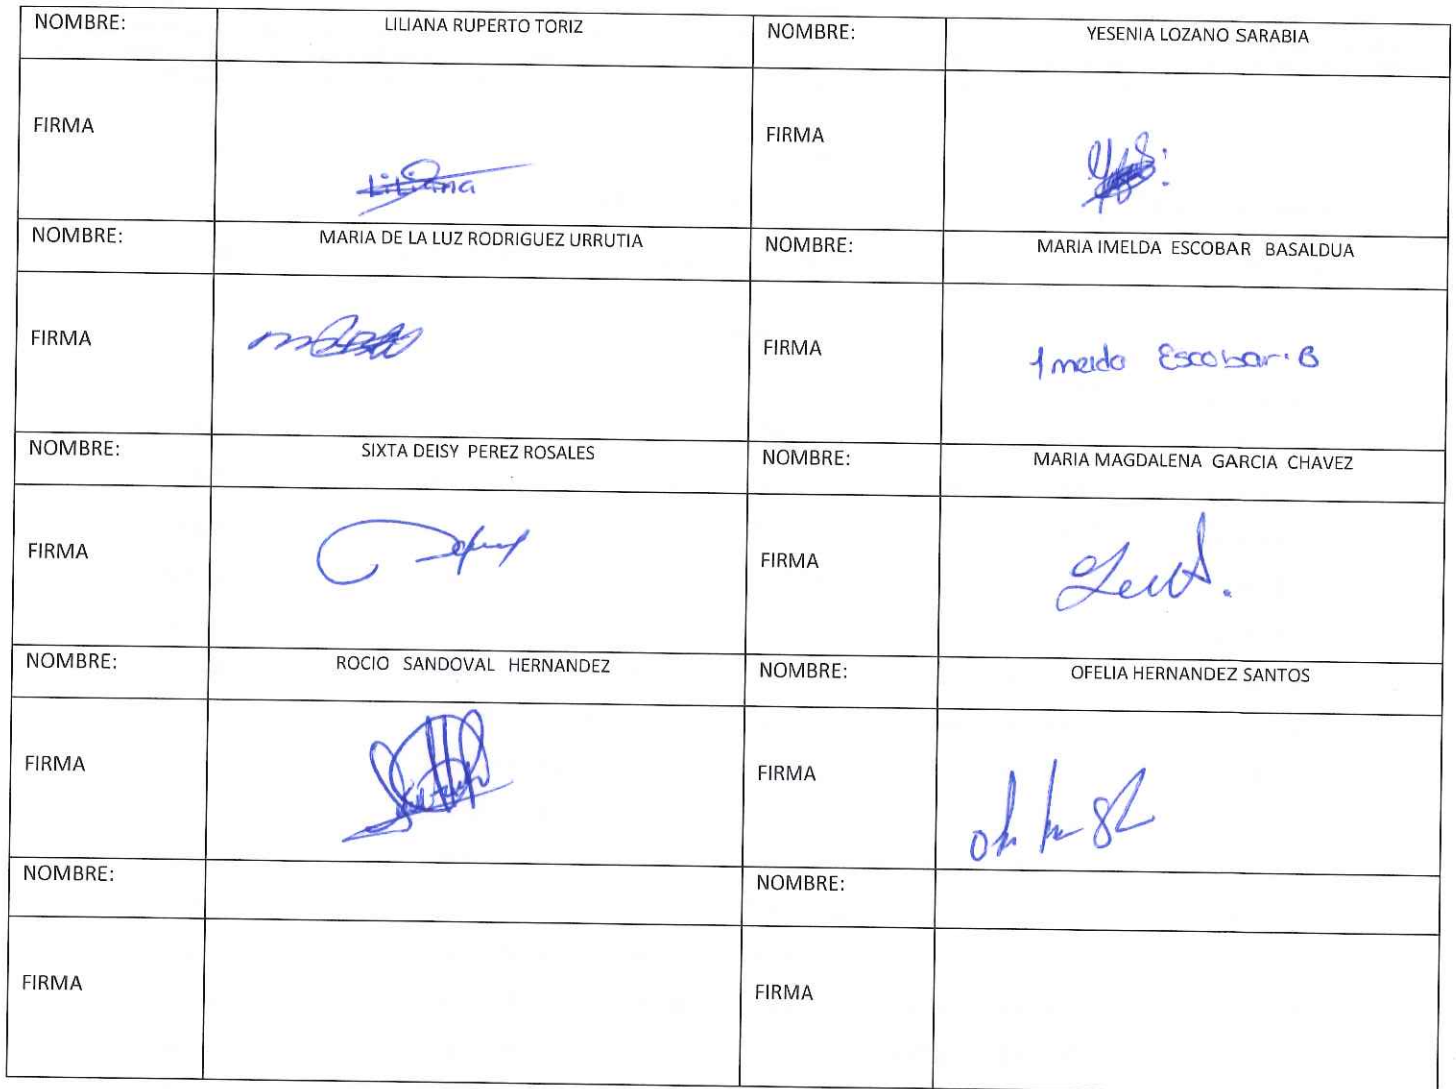 NOMBRE: LILIANA RUPERTO TORIZ NOMBRE: YESENIA LOZANO SARABIA
FIRMA Liliana FIRMA
NOMBRE: MARIA DE LA LUZ RODRIGUEZ URRUTIA NOMBRE: MARIA IMELDA ESCOBAR BASALDUA
FIRMA FIRMA Imelda Escobar. B
NOMBRE: SIXTA DEISY PEREZ ROSALES NOMBRE: MARIA MAGDALENA GARCIA CHAVEZ
FIRMA FIRMA
NOMBRE: ROCIO SANDOVAL HERNANDEZ NOMBRE: OFELIA HERNANDEZ SANTOS
FIRMA FIRMA
NOMBRE: NOMBRE:
FIRMA FIRMA